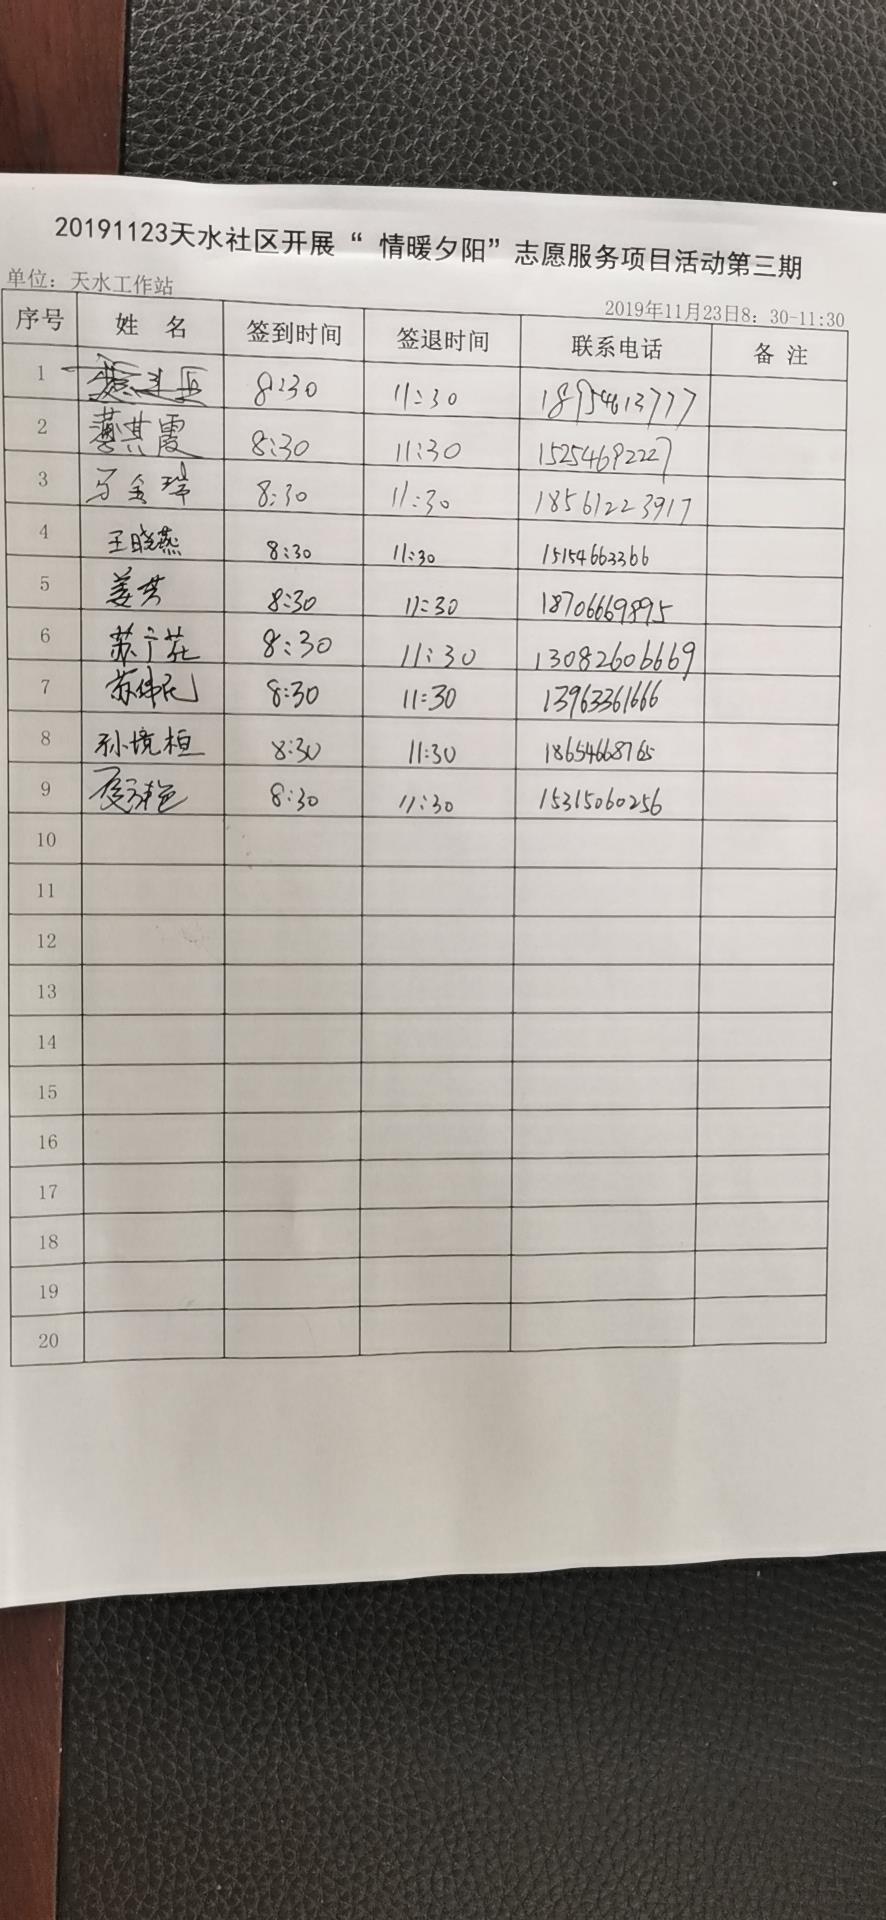 20191123天水社区开展“ 情暖夕阳”志愿服务项目活动第三期
单位：天水工作站
2019年11月23日8：30-11:30
序号 姓 名 签到时间 签退时间 联系电话 备 注
1 8:30 11:30 18954613777
2 8:30 11:30 15254692227
3 8:30 11:30 18561223917
4 王晓燕 8:30 11:30 15154663366
5 8:30 11:30 18706669895
6 8:30 11:30 13082606669
7 苏伟民 8:30 11:30 13963361666
8 孙境桓 8:30 11:30 18654668765
9 8:30 11:30 15315060256
10
11
12
13
14
15
16
17
18
19
20